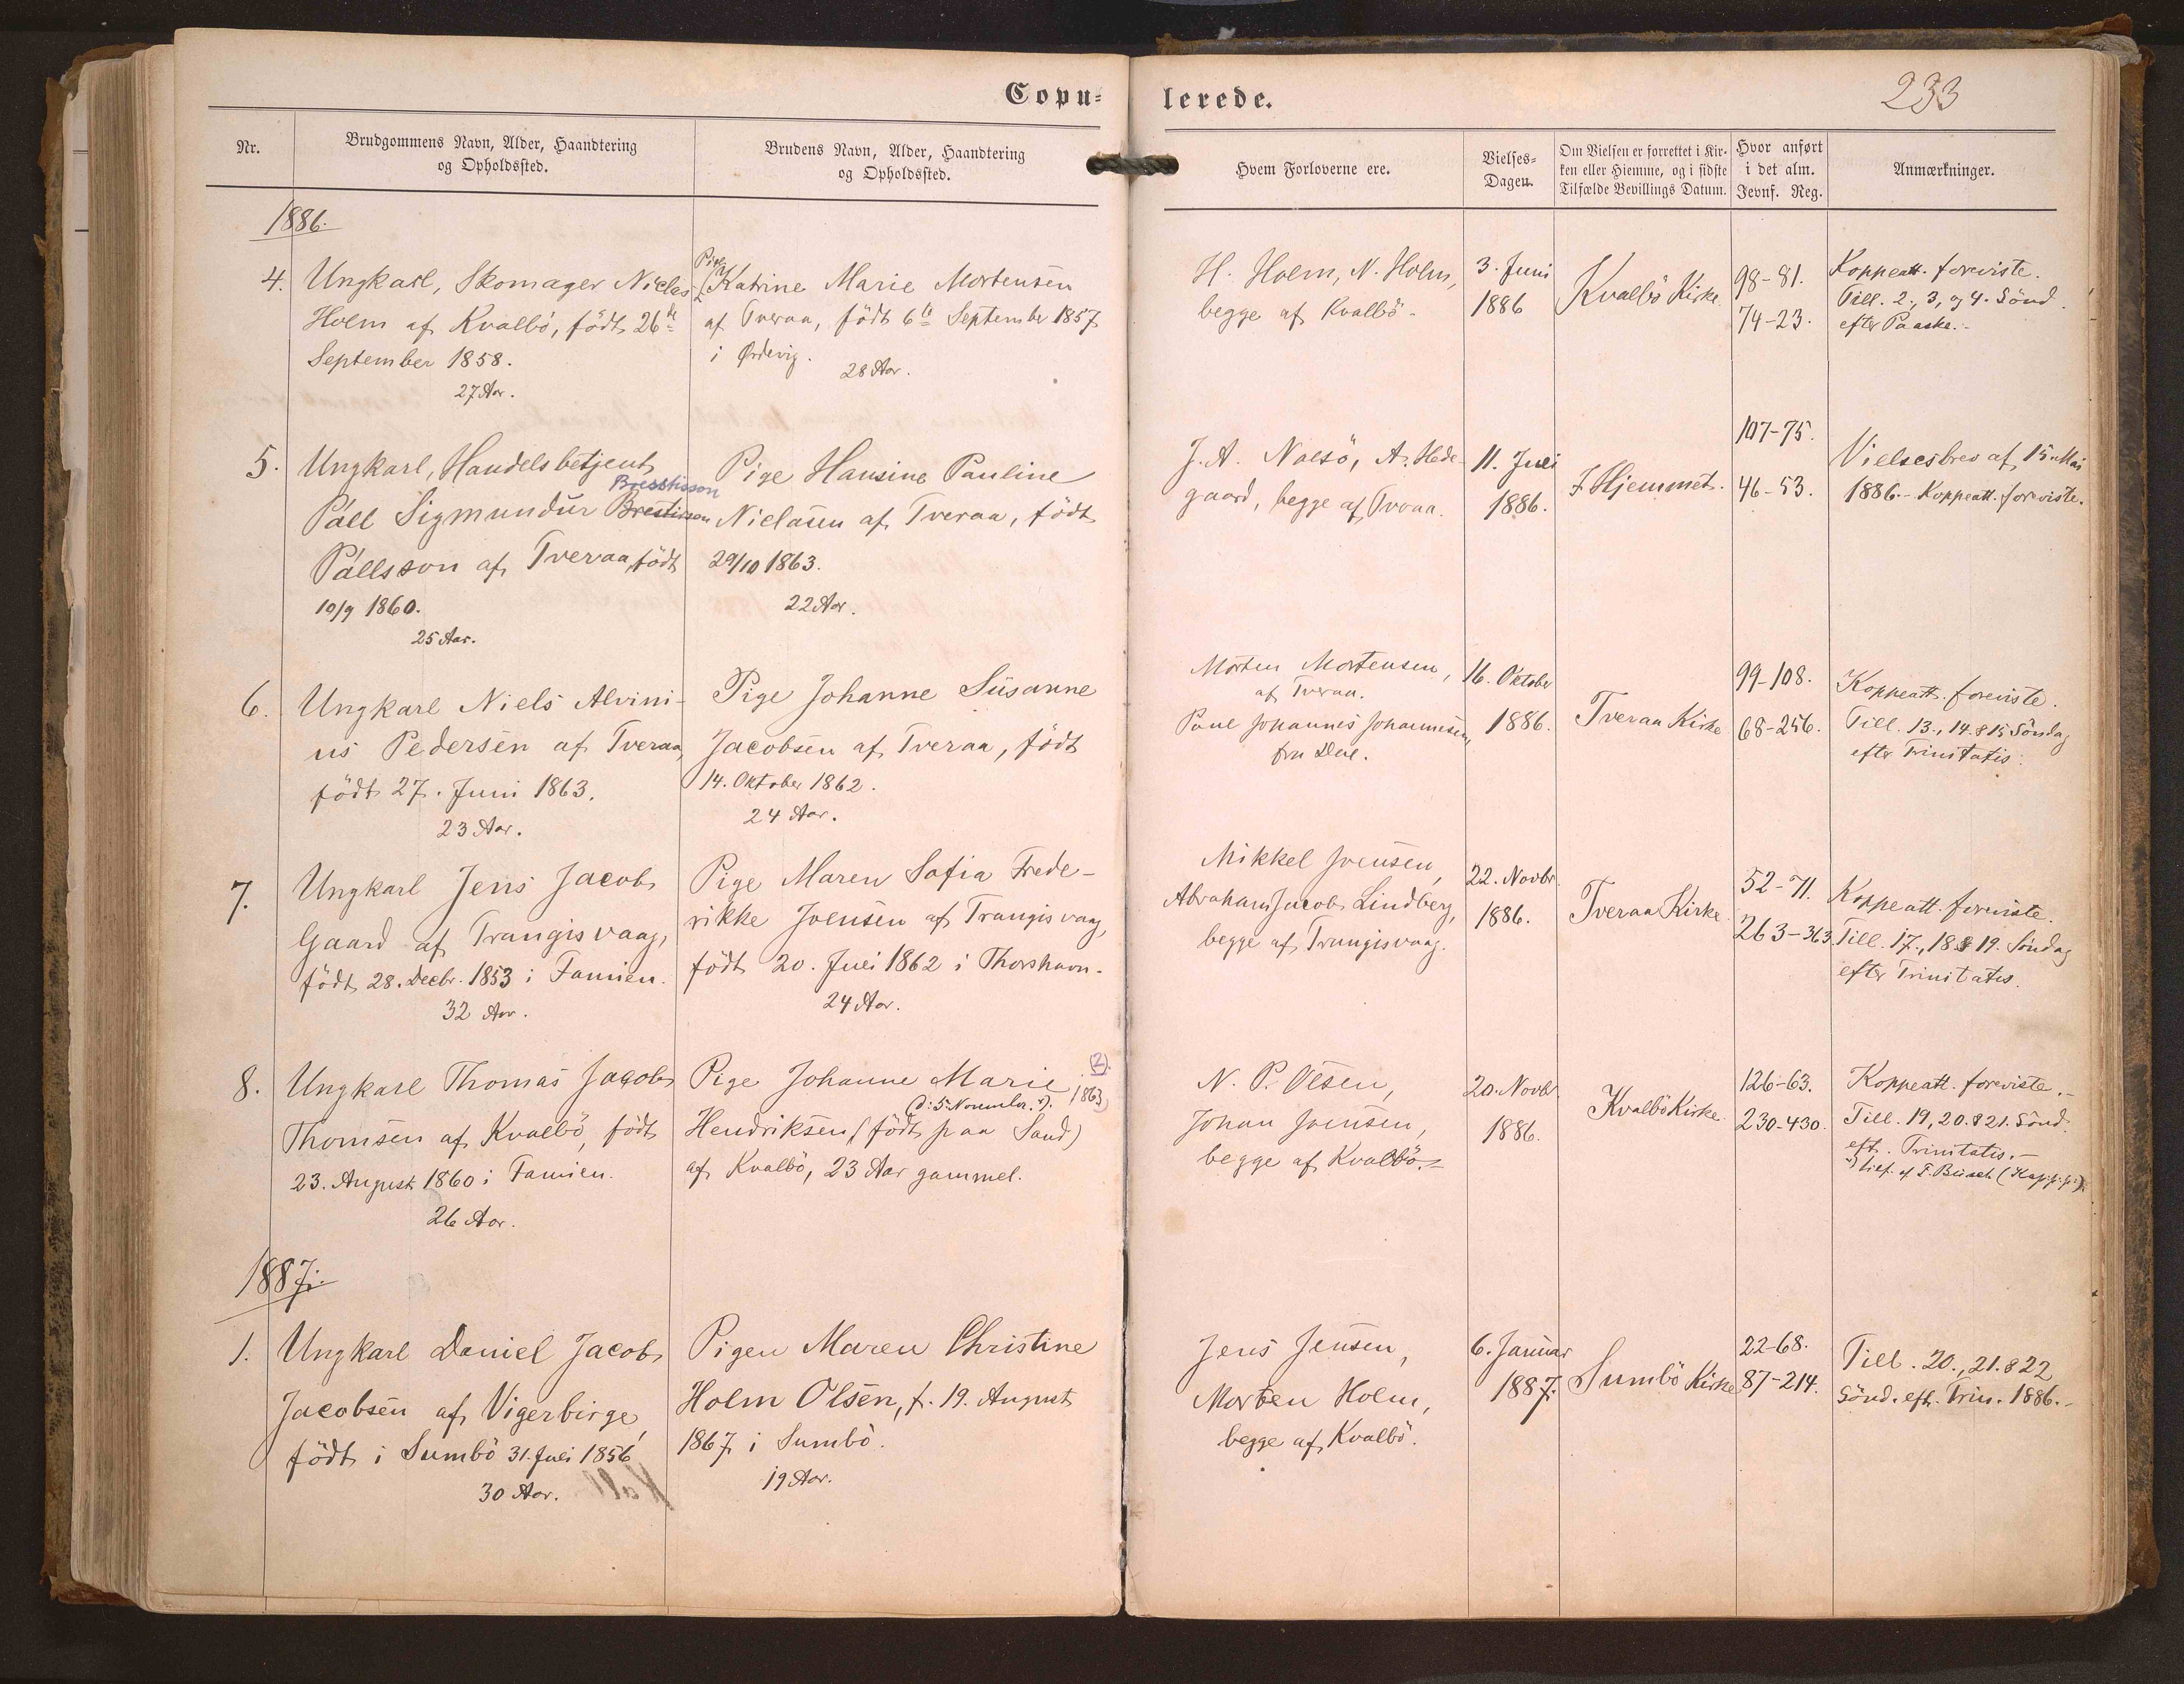 Copu-
lerede.
233
Nr.
Brudgommens Navn, Alder, Haandtering
og Opholdssted.
Brudens Navn, Alder, Haandtering
og Opholdssted.
Hvem Forloverne ere.
Vielses-
Dagen.
Om Vielsen er forrettet i Kir-
ken eller Hiemme, og i sidste
Tilfælde Bevillings Datum.
Hvor anført
i det alm.
Jevnf. Reg.
Anmærkninger.
1886.
4.
Ungkarl, Skomager Niclas
Holm af Kvalbö, födt 26de
September 1858.
27 Aar.
Pigen
Katrine Marie Mortensen
af Tveraa, födt 6te September 1857
i Ördevig.
28 Aar.
H. Holm, N. Holm,
begge af Kvalbö.
3. Juni
1886
Kvalbö Kirke
98-81.
74-23.
Koppeatt. foreviste.
Till. 2., 3, og 4. Sönd.
efter Paaske.
5.
Ungkarl, Handelsbetjent
Bresstisson
Páll Sigmundur Brestirson
Pállsson af Tveraa, födt
10/9 1860.
25 Aar.
Pige Hansine Pauline
Niclasen af Tveraa, födt
29/10 1863.
22 Aar.
J. A. Nolsö, A. Hede-
gaard, begge af Tveraa.
11. Juli
1886.
I Hjemmet.
107-75.
46-53.
Vielsesbrev af 15. Mai
1886. - Koppeatt. foreviste.
6.
Ungkarl Niels Alvini-
us Pedersen af Tveraa,
födt 27. Juni 1863.
23 Aar.
Pige Johanne Susanne
Jacobsen af Tveraa, födt
14. Oktober 1862.
24 Aar.
Morten Mortensen,
af Tveraa.
Poul Johannes Johannesen,
fra Dal.
16. Oktober
1886.
Tveraa Kirke
99-108.
68-256.
Koppeatt. foreviste.
Till. 13., 14. & 15 Söndag
efter Trinitatis.
7.
Ungkarl Jens Jacob
Gaard af Trangisvaag,
födt 28. Decbr. 1853 i Famien.
32 Aar.
Pige Maren Sofia Frede-
rikke Joensen af Trangisvaag,
födt 20. Juli 1862 i Thorshavn.
24 Aar.
Mikkel Joensen,
Abraham Jacob Lindberg,
begge af Trangisvaag.
22. Novbr.
1886.
Tveraa Kirke
52-71.
263-363
Koppeatt. foreviste.
Till. 17., 18. & 19. Söndag
efter Trinitatis.
8.
Ungkarl Thomas Jacob
Thomsen af Kvalbö, födt
23. August 1860 i Famien.
26 Aar.
Pige Johanne Marie
(2).
(d: 5 November. 1863)
Hendriksen (födt paa Sand)
af Kvalbö, 23 Aar gammel.
N. P. Olsen,
Johan Joensen,
begge af Kvalbö.
20. Novbr.
1886.
Kvalbö Kirke
126-63.
230-430.
Koppeatt. foreviste.
Till. 19, 20. & 21. Sönd.
eft. Trinitatis.
1887.
1.
Ungkarl Daniel Jacob
Jacobsen af Vigerbirge,
födt i Sumbö 31. Juli 1856
30 Aar.
Pigen Maren Christine
Holm Olsen, f. 19. August
1867 i Sumbö.
19 Aar.
Jens Jensen,
Morten Holm,
begge af Kvalbö.
6. Januar
1887.
Sumbö Kirke
22-68.
87-214.
Till. 20., 21. & 22
Sönd. eft. Trin. 1886.